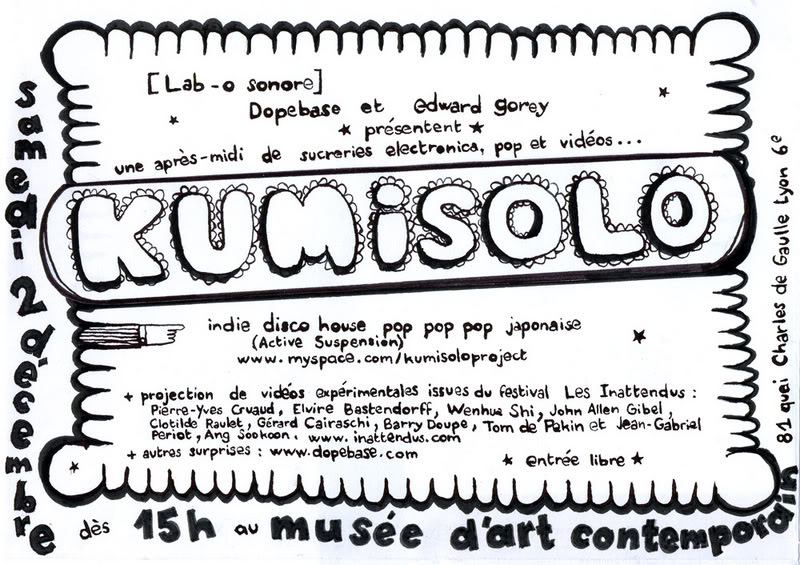 [Lab-o sonore]
Dopebase et edward gorey
★ présentent ★
une après-midi de sucreries electronica, pop et vidéos...
KUMiSOLO
indie disco house pop pop pop japonaise
(Active Suspension)
www.myspace.com/kumisoloproject
+ projection de vidéos expérimentales issues du festival Les Inattendus :
Pierre-Yves Cruaud, Elvire Bastendorff, Wenhua Shi, John Allen Gibel,
Clotilde Raulet, Gérard Cairaschi, Barry Doupe, Tom de Pekin et Jean-Gabriel
Periot, Ang Sookoon. www.inattendus.com
+ autres surprises : www.dopebase.com
★ entrée libre ★
samedi 2 décembre
dès 15h au musée d'art contemporain
81 quai Charles de Gaulle Lyon 6e